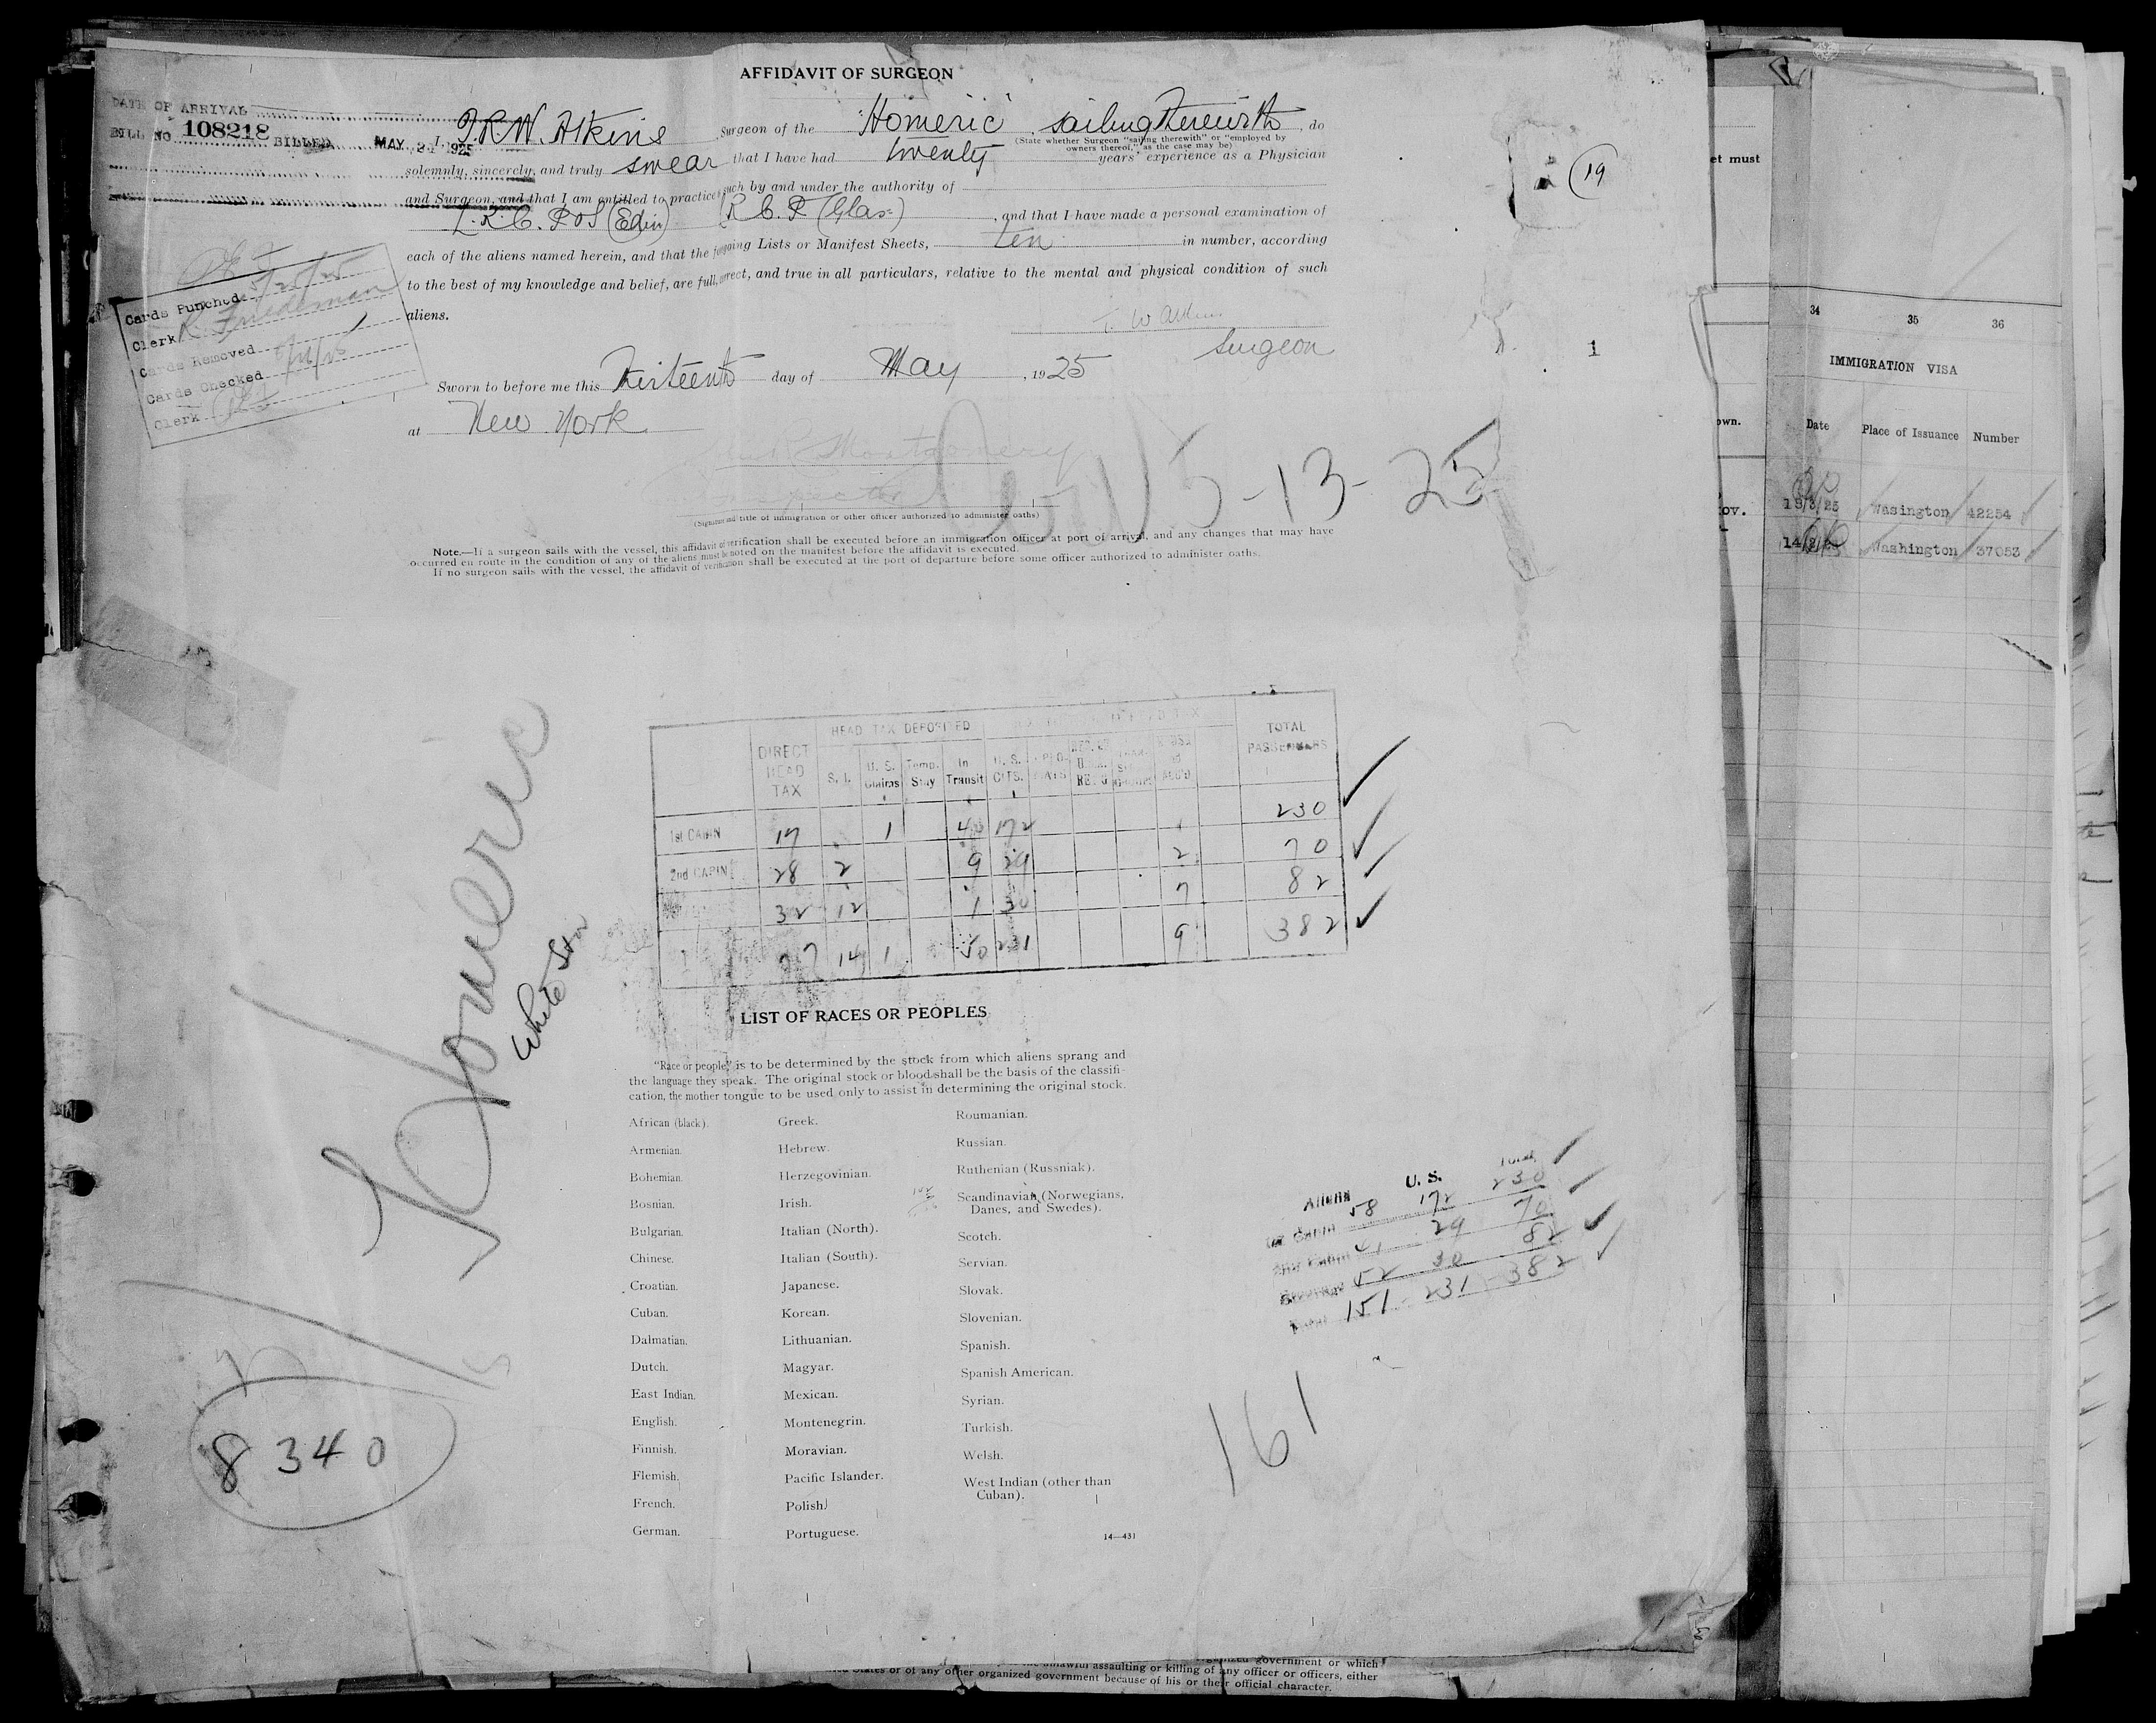 AFFIDAVIT OF SURGEON
DATE OF ARRIVAL
BILL NO. 108218 BILLED MAY 21 1925
I, T.R.W. Atkins Surgeon of the "Homeric" sailing therewith, do
(State whether Surgeon "sailing therewith" or "employed by
owners thereof," as the case may be)
solemnly, sincerely, and truly swear that I have had twenty years' experience as a Physician
and Surgeon, and that I am entitled to practice such by and under the authority of
L.R.C.P & S (Edin) R C P (Glas:), and that I have made a personal examination of
each of the aliens named herein, and that the foregoing Lists or Manifest Sheets, ten in number, according
to the best of my knowledge and belief, are full, correct, and true in all particulars, relative to the mental and physical condition of such
aliens.
Surgeon
Sworn to before me this Thirteenth day of May, 1925
at New York
Montgomery
Inspector
(Signature and title of immigration or other officer authorized to administer oaths)
5-13-25
Note.—If a surgeon sails with the vessel, this affidavit of verification shall be executed before an immigration officer at port of arrival, and any changes that may have
occurred en route in the condition of any of the aliens must be noted on the manifest before the affidavit is executed.
If no surgeon sails with the vessel, the affidavit of verification shall be executed at the port of departure before some officer authorized to administer oaths.
Cards Punched 5/25/25
Clerk R. Friedeman
Cards Removed
Cards Checked
Clerk
19
1
Homeric
White Star
8340
DIRECT HEAD TAX HEAD TAX DEPOSITED TOTAL PASSENGERS
S. I. U. S. Claims Temp. Stay In Transit U. S. CITS.
1st CABIN 17 1 40 172 230
2nd CABIN 28 2 9 29 2 70
32 12 1 30 7 82
77 14 1 50 231 9 382
LIST OF RACES OR PEOPLES
"Race or people" is to be determined by the stock from which aliens sprang and
the language they speak. The original stock or blood shall be the basis of the classifi-
cation, the mother tongue to be used only to assist in determining the original stock.
African (black).
Armenian.
Bohemian.
Bosnian.
Bulgarian.
Chinese.
Croatian.
Cuban.
Dalmatian.
Dutch.
East Indian.
English.
Finnish.
Flemish.
French.
German.
Greek.
Hebrew.
Herzegovinian.
Irish.
Italian (North).
Italian (South).
Japanese.
Korean.
Lithuanian.
Magyar.
Mexican.
Montenegrin.
Moravian.
Pacific Islander.
Polish.
Portuguese.
Roumanian.
Russian.
Ruthenian (Russniak).
Scandinavian (Norwegians,
Danes, and Swedes).
Scotch.
Servian.
Slovak.
Slovenian.
Spanish.
Spanish American.
Syrian.
Turkish.
Welsh.
West Indian (other than
Cuban).
14—431
Aliens U. S. Total
1st Cabin 58 172 230
2nd Cabin 41 29 70
Steerage 52 30 82
Total 151 231 382
161
et must
own.
ov.
34 35 36
IMMIGRATION VISA
Date Place of Issuance Number
19/3/25 Wasington 42254
14/2/25 Washington 37053
organized government or which
unlawful assaulting or killing of any officer or officers, either
States or of any other organized government because of his or their official character.